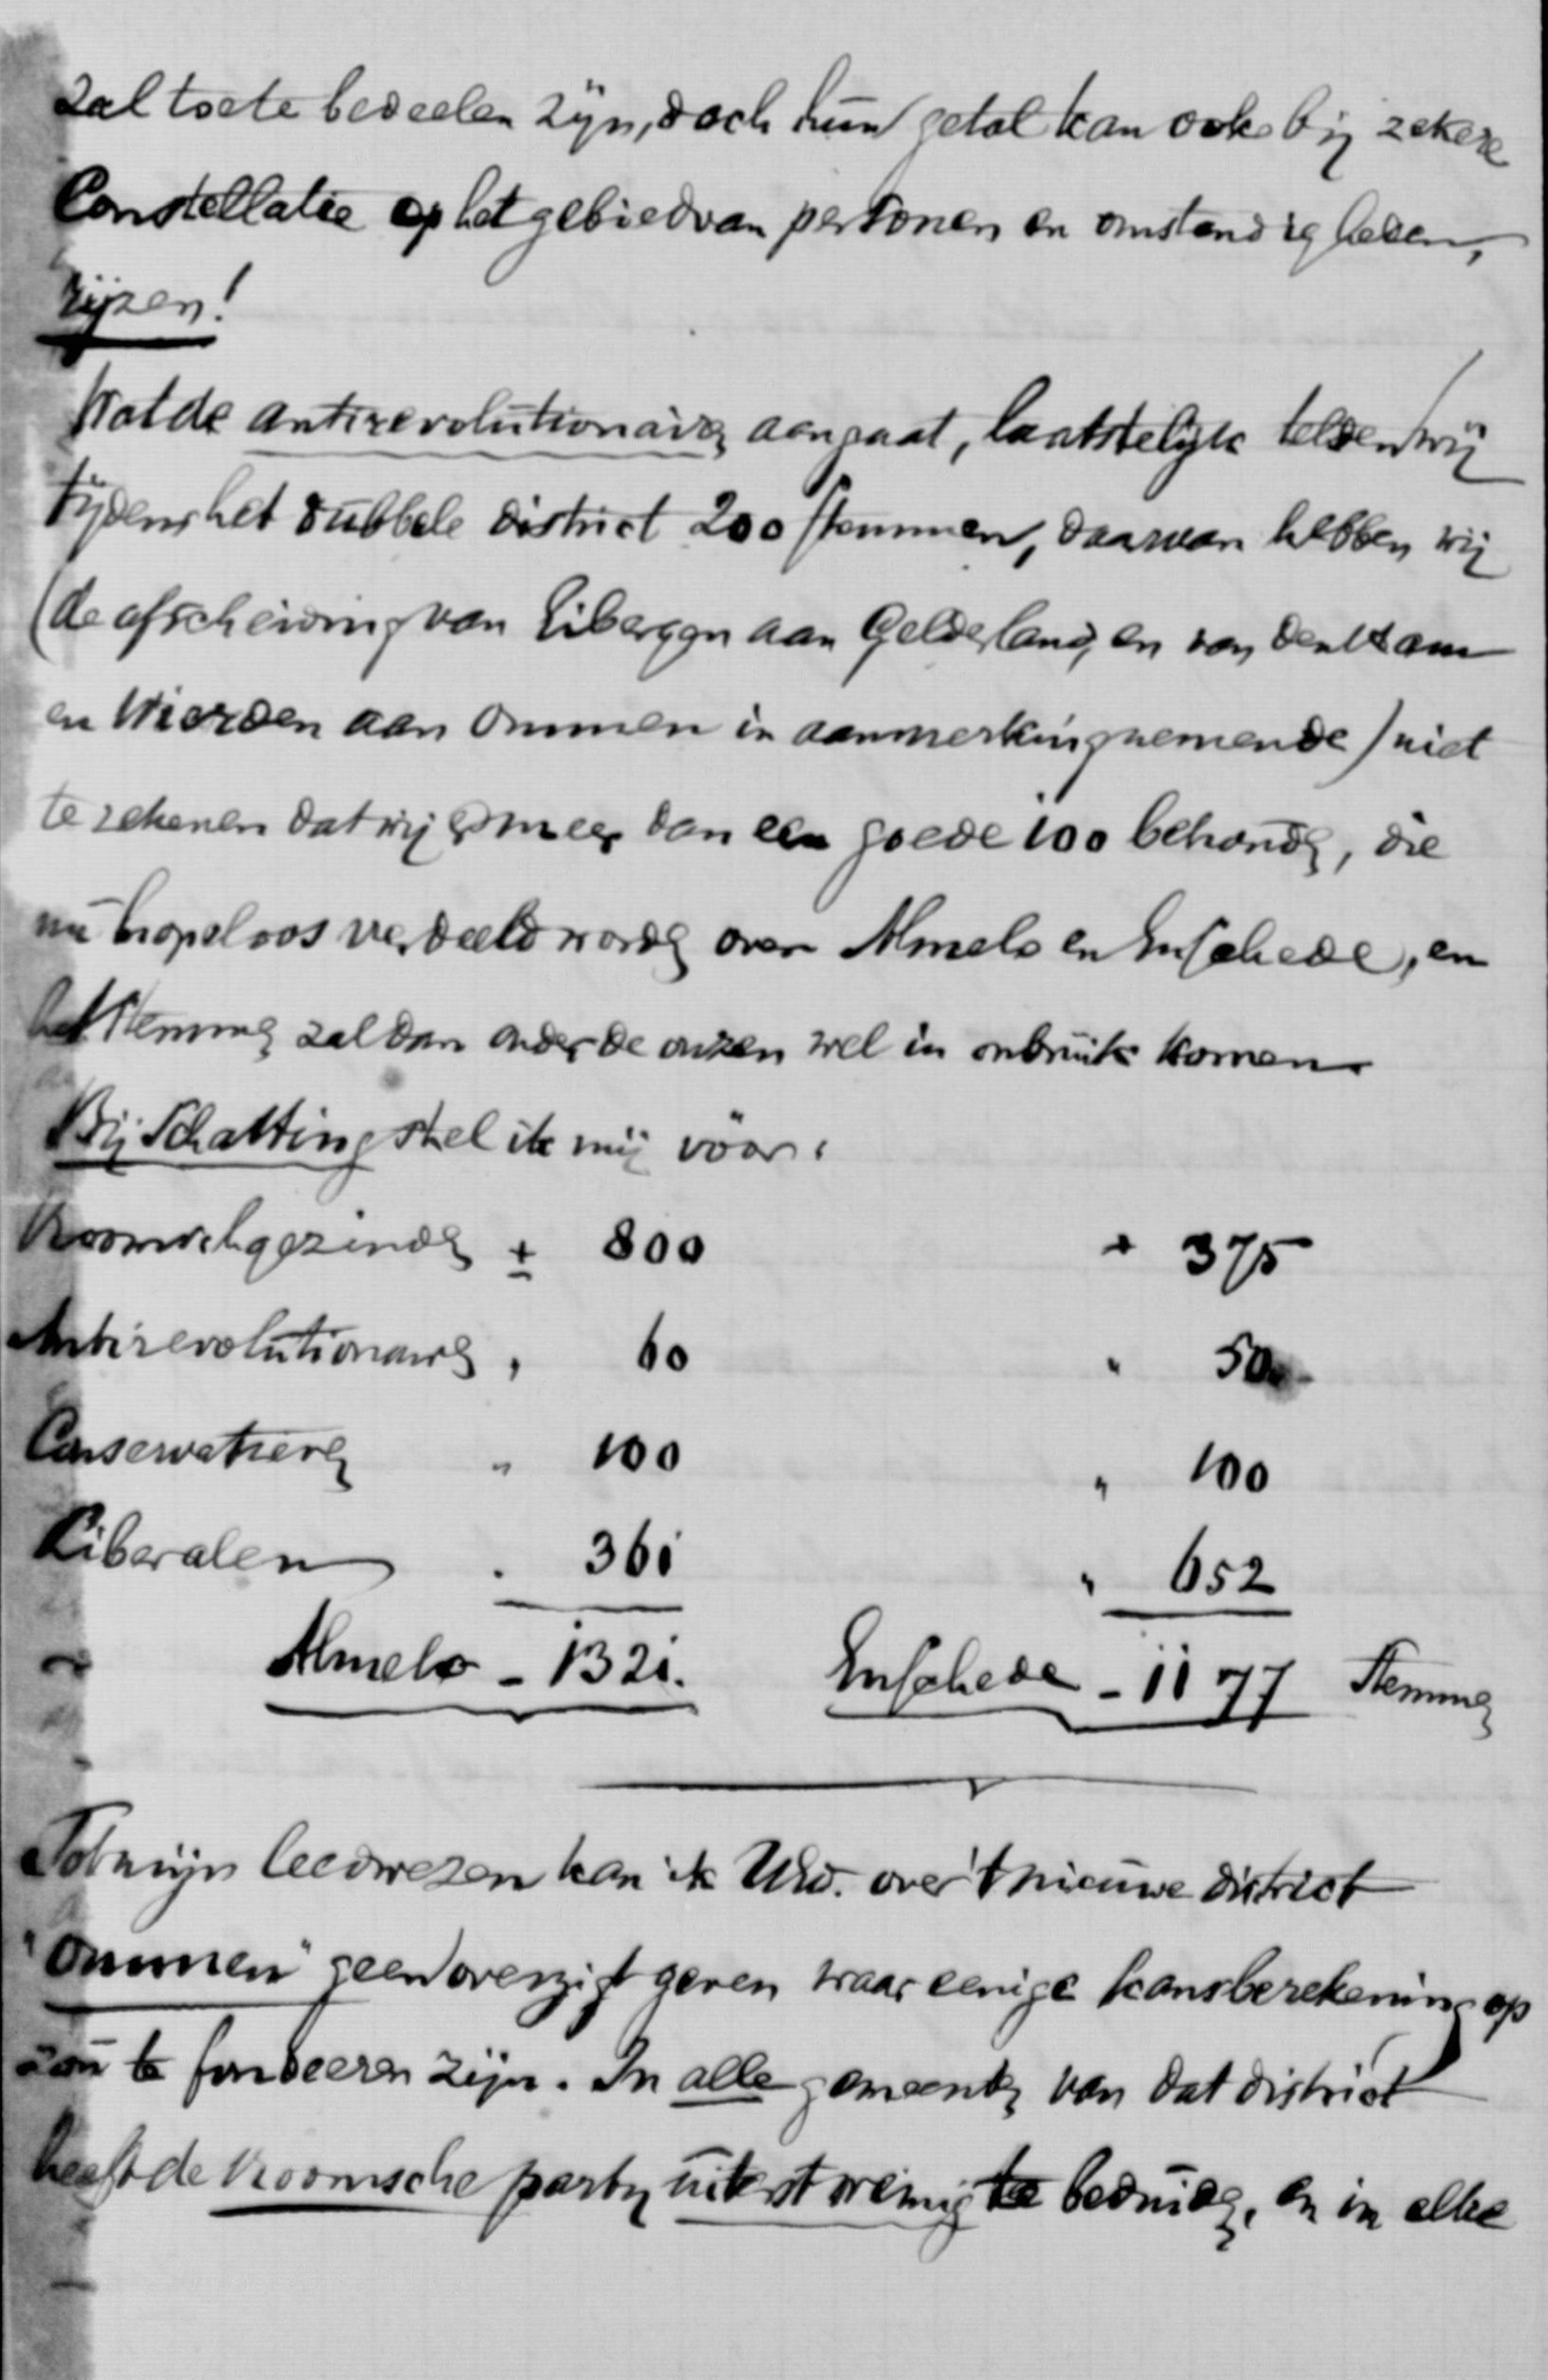 zal toe te bedeelen zijn, doch hun getal kan ook bij zekere
Constellatie op het gebied van personen en omstandigheden,
rijzen!
Wat de antirevolutionairen aangaat, laatstelijk telden wij
tijdens het dubbele district 200 stemmen, daarvan hebben wij
(de afscheiding van Eibergen aan Gelderland, en van den Ham
en Wierden aan Ommen in aanmerking nemende) niet
te rekenen dat wij er meer dan een goede 100 behouden, die
nu hopeloos verdeeld worden over Almelo en Enschede, en
het stemmen zal dan onder de onzen wel in onbruik komen.
Bij Schatting stel ik mij voor:
Roomschgezinden ± 800 " 375
Antirevolutionairen " 60 " 50
Conservatieven " 100 " 100
Liberalen " 361 " 652
Almelo - 1321. Enschede - 1177 Stemmen
Tot mijn leedwezen kan ik UEd. over 't nieuwe district
"Ommen" geen overzigt geven waar eenige kansberekening op
zou te fondeeren zijn. In alle gemeenten van dat district
heeft de Roomsche partij uiterst weinig te beduiden, en in elke